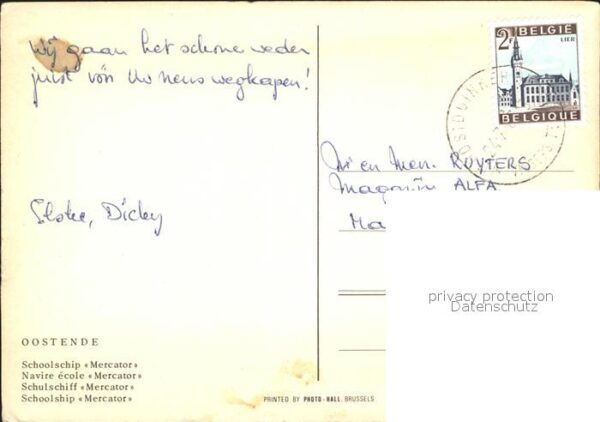 Wij gaan het schone weder
juist vóór Uw neus wegkapen!
Dicky
BELGIE
2F
LIER
BELGIQUE
en RUYTERS
ALFA
Ma
privacy protection
Datenschutz
OOSTENDE
Schoolschip «Mercator»
Navire école «Mercator»
Schulschiff «Mercator»
Schoolship «Mercator»
PRINTED BY PHOTO-HALL. BRUSSELS